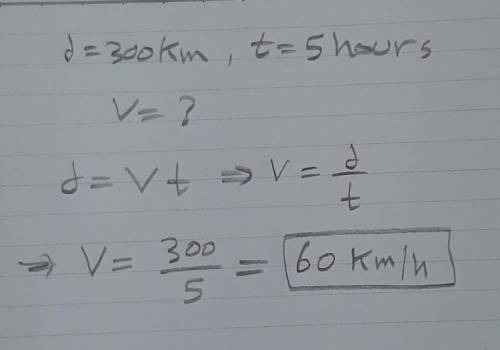 d = 300 Km , t = 5 hours
V = ?
d = V t ⇒ V = d/t
⇒ V = 300/5 = 60 Km/h